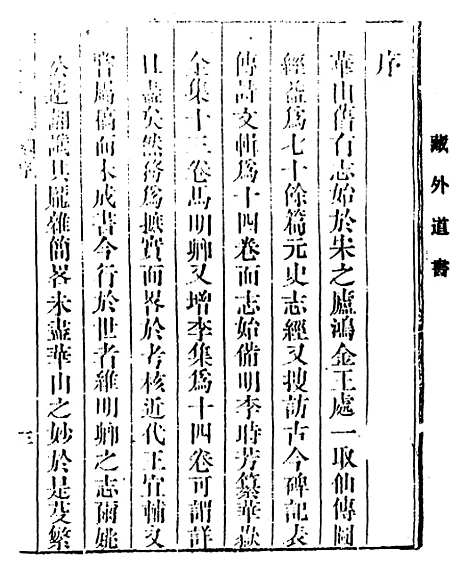 藏外道書
序
華山舊有志始於宋之盧鴻金王處一取仙傳圖
經益爲七十餘篇元史志經又搜訪古今碑記表
傳詩文輯爲十四卷而志始備明李時芳纂華嶽
全集十三卷馬明卿又增李集爲十四卷可謂詳
且盡矣然務爲摭實而畧於考核近代王宜輔又
嘗屬僞而未成書今行於世者維明卿之志爾姚
公遠翮議其龐雜簡畧未盡華山之妙於是芟繁
序
三